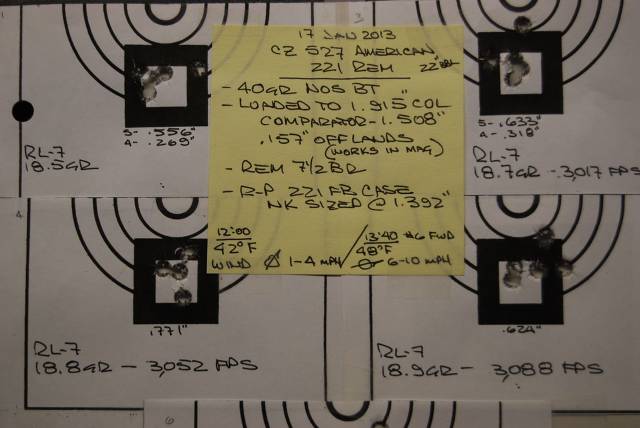 17 JAN 2013
CZ 527 AMERICAN,
221 REM 22" BBL
- 40GR NOS BT
- LOADED TO 1.915 COL
COMPARATOR - 1.508"
.157" OFF LANDS
(WORKS IN MAG)
- REM 7 1/2 BR
- R-P 221 FB CASE
NK SIZED @ 1.392"
12:00
42°F
WIND 1-4 MPH
13:40 #6 FWD
48°F
6-10 MPH
5- .556"
4- .269"
RL-7
18.5GR
3
5- .633"
4- .318"
RL-7
18.7GR - 3,017 FPS
4
.771"
RL-7
18.8GR - 3,052 FPS
.624"
RL-7
18.9GR - 3,088 FPS
6